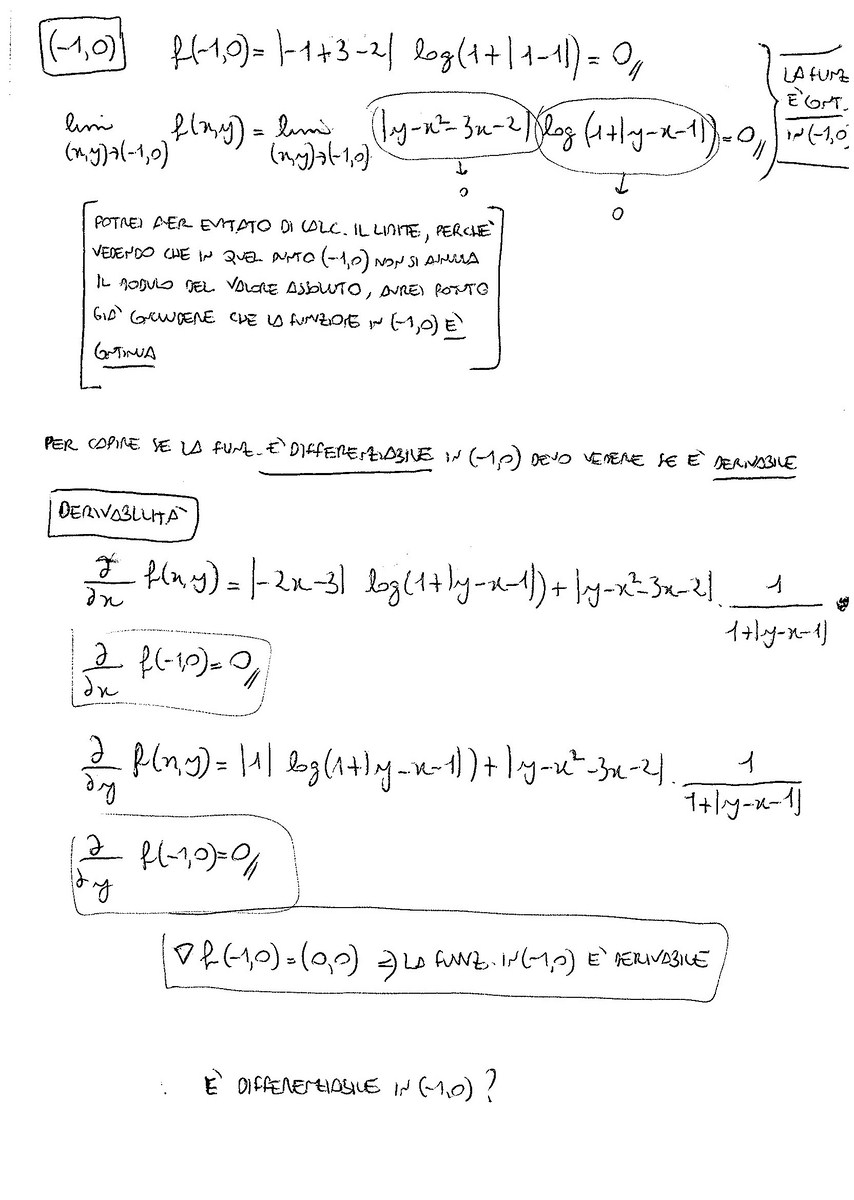 (-1,0) f(-1,0) = |-1+3-2| log(1+|1-1|) = 0 //
lim (x,y)→(-1,0) f(x,y) = lim (x,y)→(-1,0) |y-x²-3x-2| log(1+|y-x-1|) = 0 //
↓ 0 ↓ 0
LA FUNZ
È CONT.
IN (-1,0)
POTREI AVER EVITATO DI CALC. IL LIMITE, PERCHÈ
VEDENDO CHE IN QUEL PUNTO (-1,0) NON SI ANNULLA
IL MODULO DEL VALORE ASSOLUTO, AVREI POTUTO
GIÀ CONCLUDERE CHE LA FUNZIONE IN (-1,0) È
CONTINUA
PER CAPIRE SE LA FUNZ. È DIFFERENZIABILE IN (-1,0) DEVO VEDERE SE È DERIVABILE
DERIVABILITÀ
∂/∂x f(x,y) = |-2x-3| log(1+|y-x-1|) + |y-x²-3x-2| · 1/(1+|y-x-1|)
∂/∂x f(-1,0) = 0 //
∂/∂y f(x,y) = |1| log(1+|y-x-1|) + |y-x²-3x-2| · 1/(1+|y-x-1|)
∂/∂y f(-1,0) = 0 //
∇ f(-1,0) = (0,0) ⇒ LA FUNZ. IN (-1,0) È DERIVABILE
È DIFFERENZIABILE IN (-1,0) ?